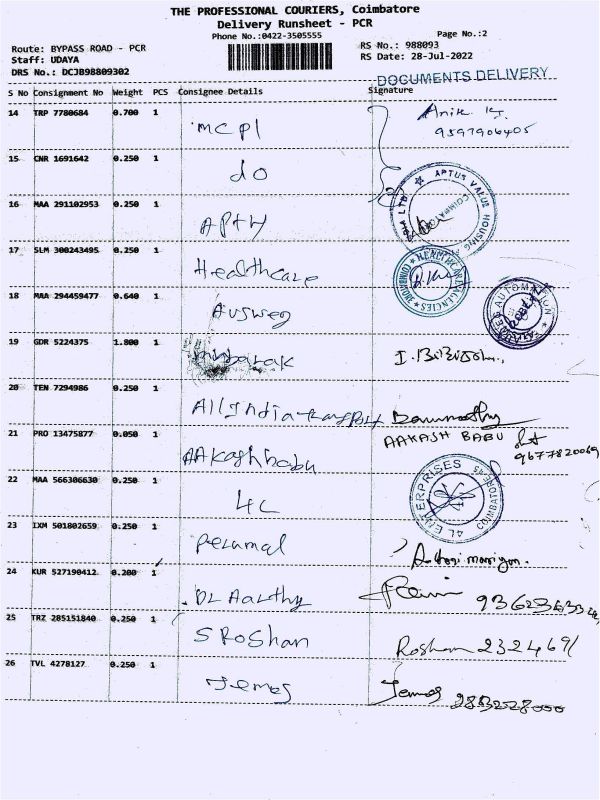 THE PROFESSIONAL COURIERS, Coimbatore
Delivery Runsheet - PCR
Phone No.:0422-3505555
Page No.:2
Route: BYPASS ROAD - PCR
RS No.: 988093
Staff: UDAYA
RS Date: 28-Jul-2022
DRS No.: DCJB98809302
DOCUMENTS DELIVERY
S No Consignment No Weight PCS Consignee Details Signature
14 TRP 7780684 0.700 1 MCPL Anik
9597906405
15 CNR 1691642 0.250 1 do
16 MAA 291102953 0.250 1 APTH
APTUS VALUE HOUSING
17 SLM 300243495 0.250 1 Healthcare
HEALTHCARE AGENCIES
18 MAA 294459477 0.640 1 Ausweg
AUSWEG AUTOMATION
19 GDR 5224375 1.800 1 Mubarak
20 TEN 7294986 0.250 1 All India transport
21 PRO 13475877 0.050 1 AAkashbabu AAKASH BABU
9677820069
22 MAA 566306630 0.250 1 4C
ENTERPRISES COIMBATORE-45
23 IXM 501802659 0.250 1 perumal
24 KUR 527190412 0.200 1 DL Aarthy
25 TRZ 285151840 0.250 1 S Roshan Roshan 232469
26 TVL 4278127 0.250 1 Jemes Jemes